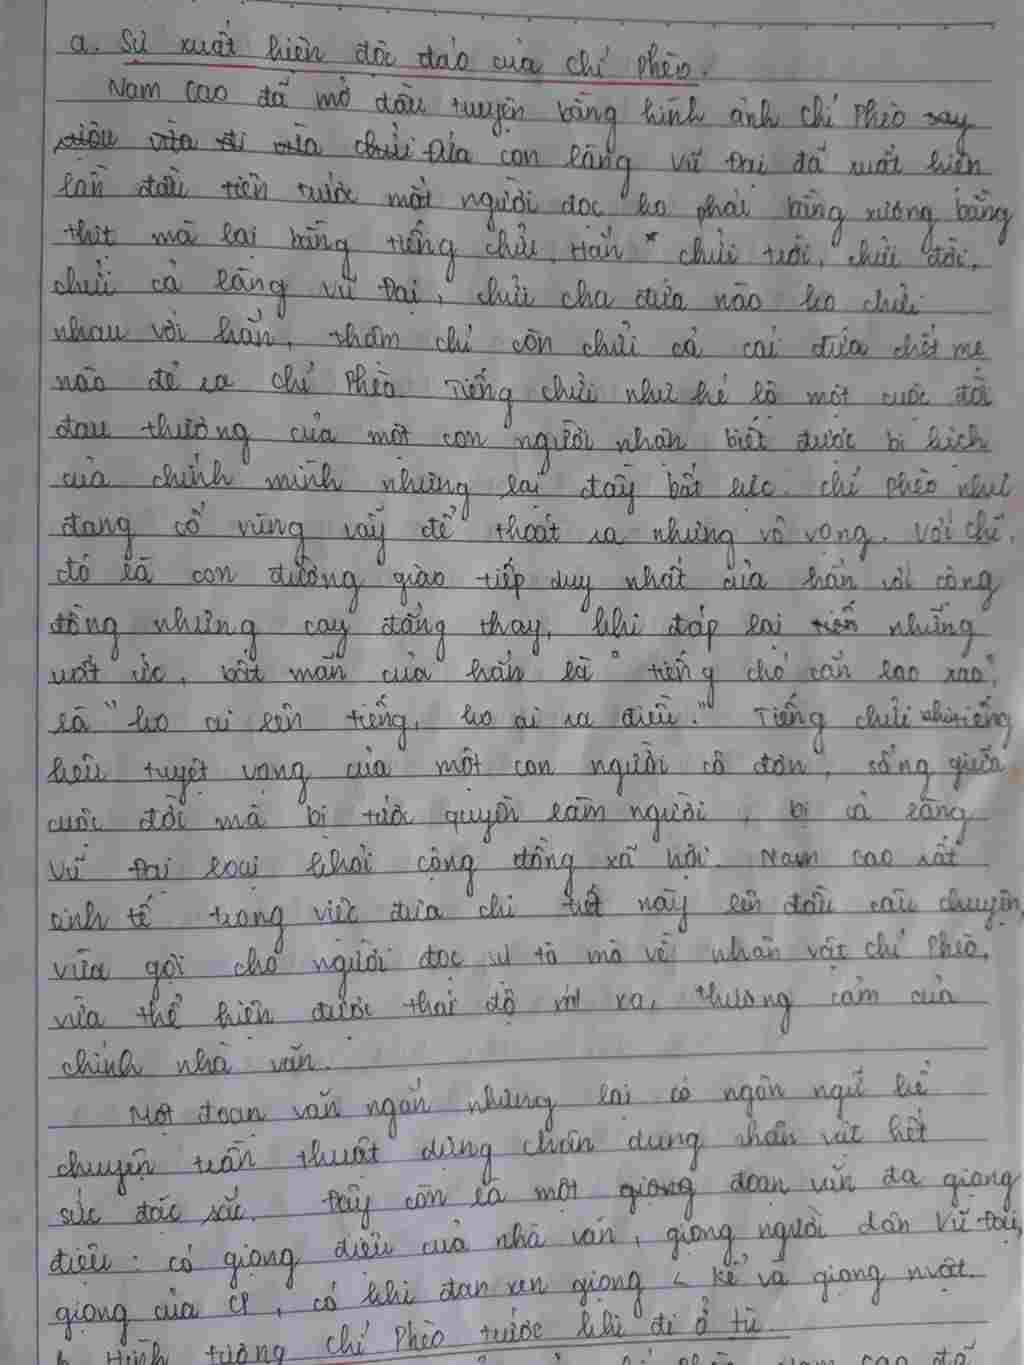 a. Sự xuất hiện độc đáo của Chí Phèo.
Nam Cao đã mở đầu truyện bằng hình ảnh Chí Phèo say
rượu vừa đi vừa chửi. Đứa con làng Vũ Đại đã xuất hiện
lần đầu tiên trước mắt người đọc ko phải bằng xương bằng
thịt mà lại bằng tiếng chửi. Hắn " chửi trời, chửi đời,
chửi cả làng Vũ Đại, chửi cha đứa nào ko chửi
nhau với hắn, thậm chí còn chửi cả cái đứa chết mẹ
nào đẻ ra Chí Phèo. Tiếng chửi như hé lộ một cuộc đời
đau thương của một con người nhận biết được bi kịch
của chính mình nhưng lại đầy bất lực. Chí Phèo như
đang cố vùng vẫy để thoát ra nhưng vô vọng. Với Chí,
đó là con đường giao tiếp duy nhất của hắn với cộng
đồng nhưng cay đắng thay, khi đáp lại những
uất ức, bất mãn của hắn là " tiếng chó cắn lao xao",
là " ko ai lên tiếng, ko ai ra điều." Tiếng chửi như tiếng
kêu tuyệt vọng của một con người cô đơn, sống giữa
cuộc đời mà bị tước quyền làm người, bị cả làng
Vũ Đại loại khỏi cộng đồng xã hội. Nam Cao rất
tinh tế trong việc đưa chi tiết này lên đầu câu chuyện,
vừa gợi cho người đọc sự tò mò về nhân vật Chí Phèo,
vừa thể hiện được thái độ xót xa, thương cảm của
chính nhà văn.
Một đoạn văn ngắn nhưng lại có ngôn ngữ kể
chuyện trần thuật dựng chân dung nhân vật hết
sức đặc sắc. Đây còn là một giọng đoạn văn đa giọng
điệu: có giọng điệu của nhà văn, giọng người dân Vũ Đại,
giọng của CP, có khi đan xen giọng < kể và giọng nvật.
b. Hình tượng Chí Phèo trước khi đi ở tù